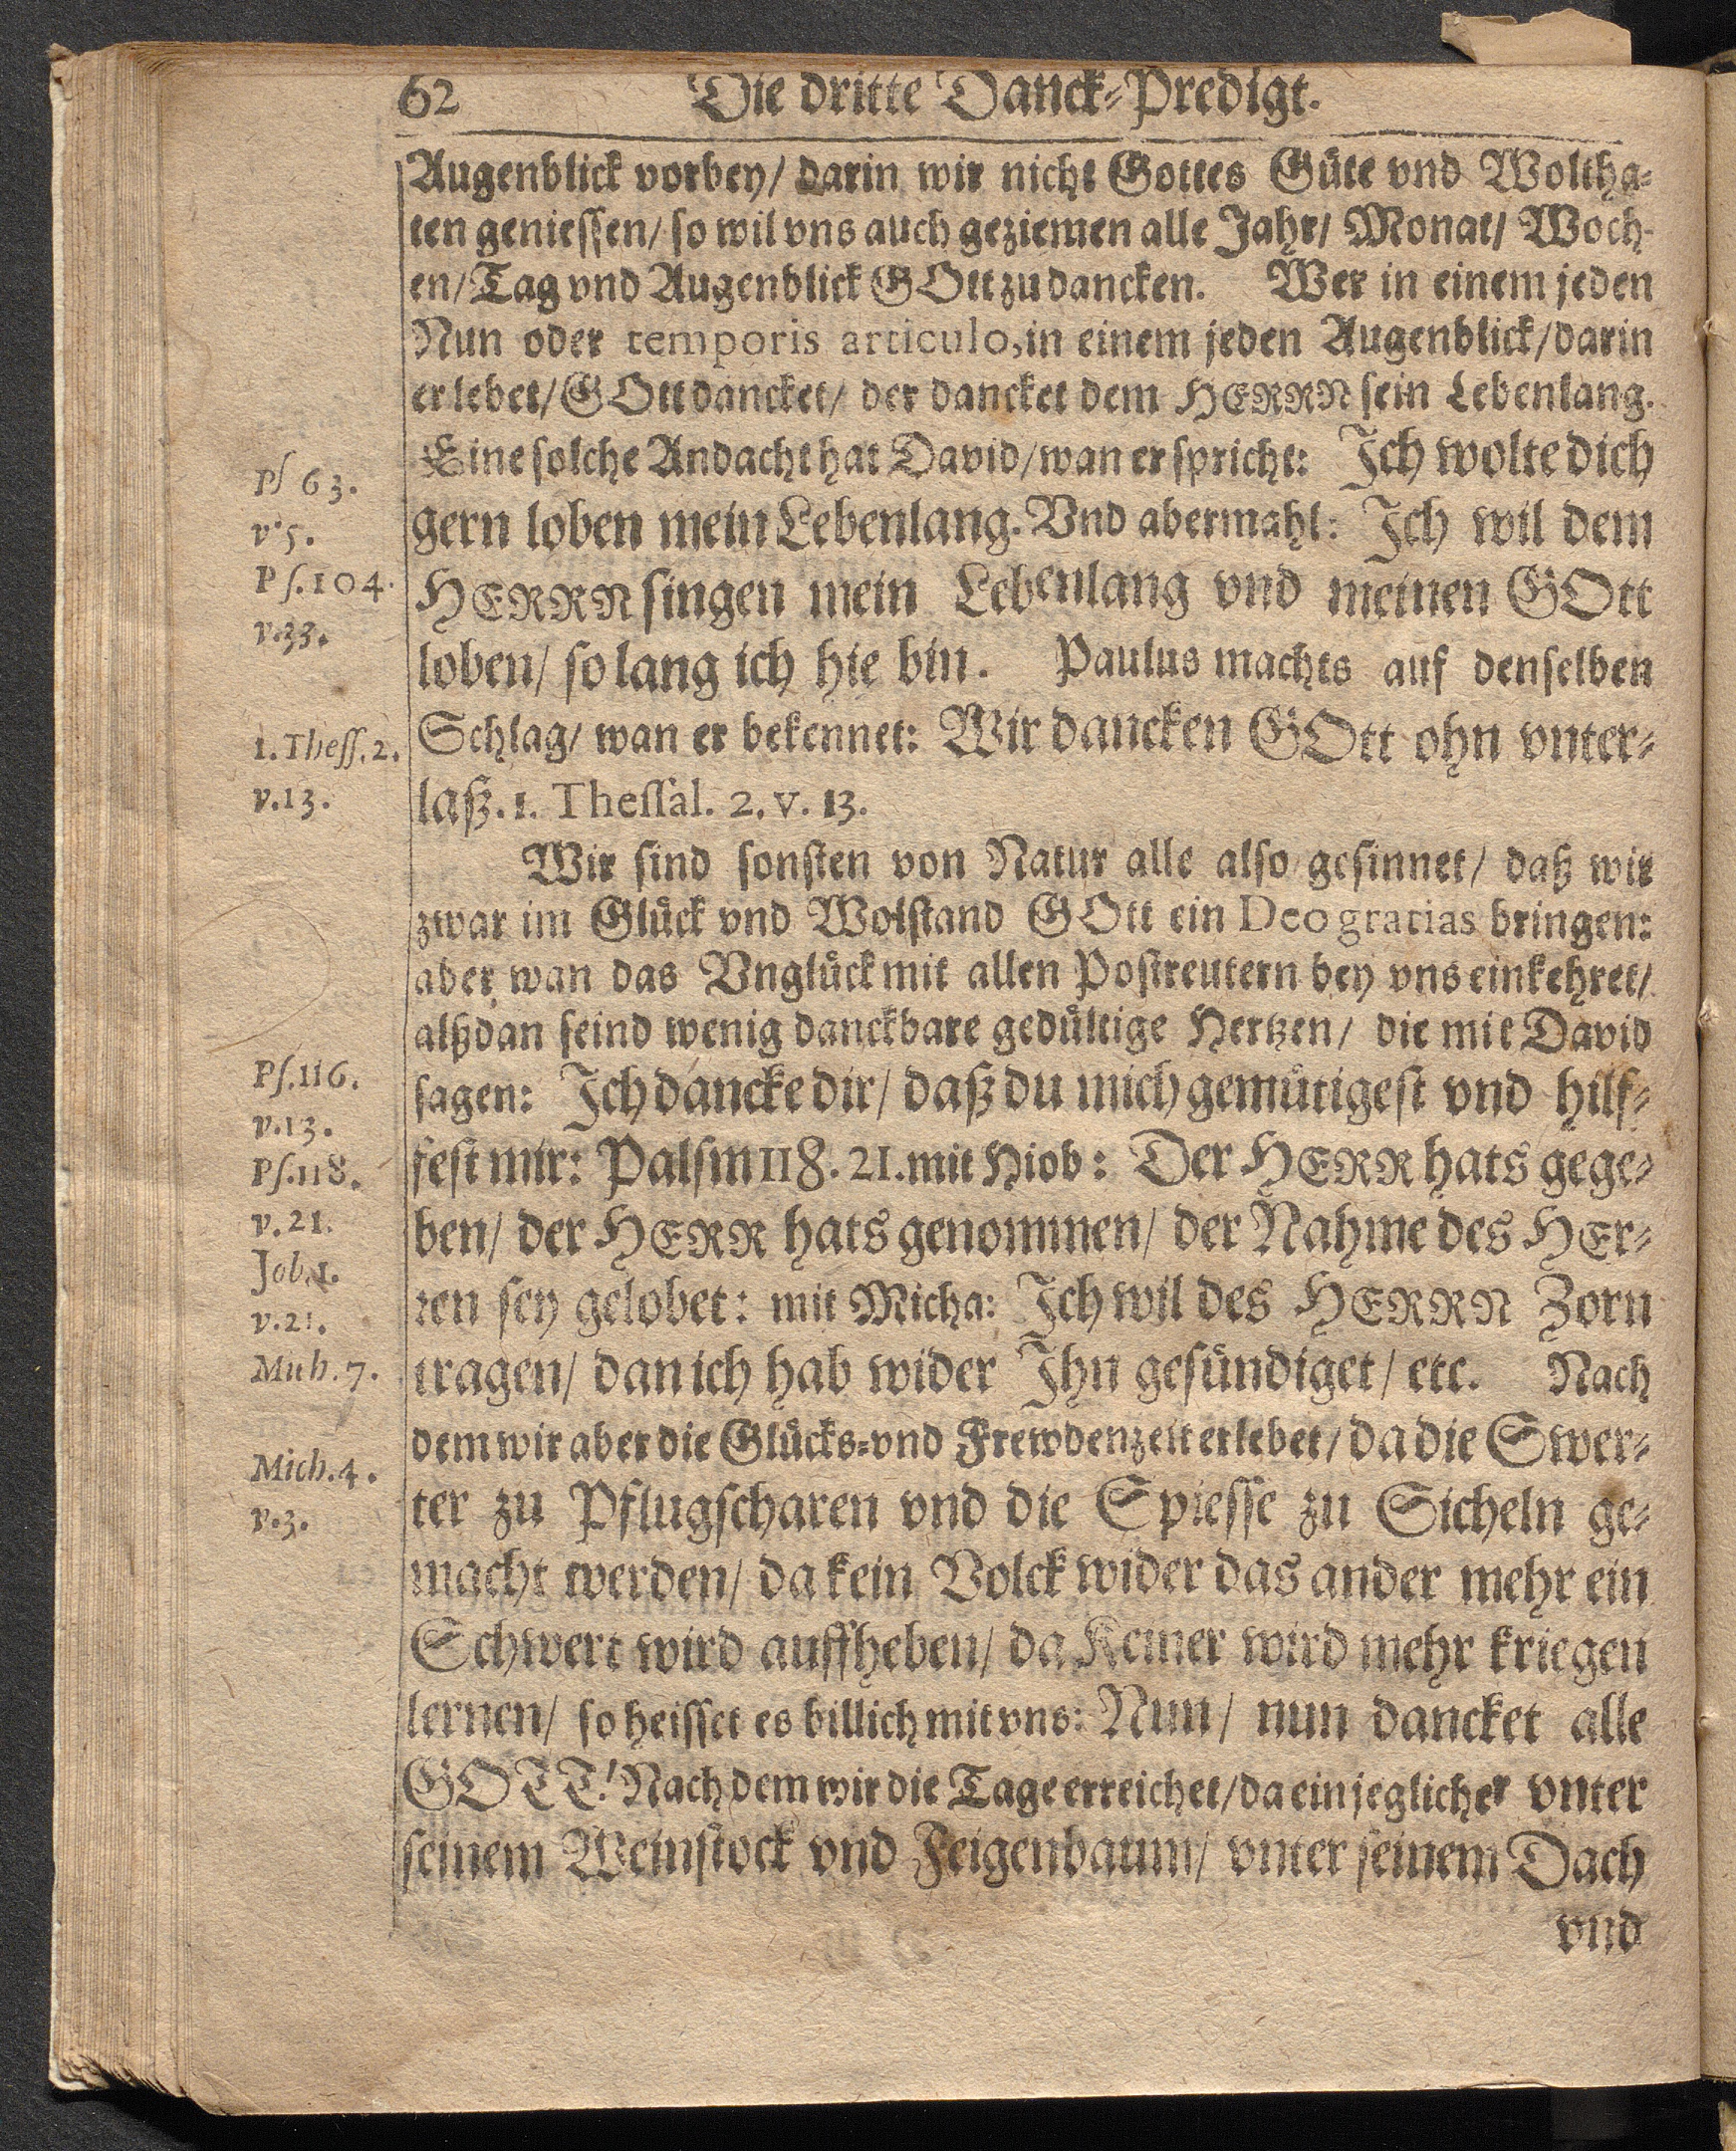 62 Die dritte Danck-Predigt.
Augenblick vorbey/ darin wir nicht Gottes Güte vnd Woltha-
ten geniessen/ so wil vns auch geziemen alle Jahr/ Monat/ Woch-
en/ Tag vnd Augenblick GOtt zu dancken. Wer in einem jeden
Nun oder temporis articulo, in einem jeden Augenblick/ darin
er lebet/ GOtt dancket/ der dancket dem HERRN sein Lebenlang.
Eine solche Andacht hat David/ wan er spricht: Ich wolte dich
Ps 63.
gern loben mein Lebenlang. Vnd abermahl: Ich wil dem
v. 5.
HERRN singen mein Lebenlang vnd meinen GOtt
Ps. 104.
v. 33.
loben/ so lang ich hie bin. Paulus machts auf denselben
Schlag/ wan er bekennet: Wir dancken GOtt ohn vnter-
1. Thess. 2.
laß. 1. Thessal. 2. v. 13.
v. 13.
Wir sind sonsten von Natur alle also gesinnet/ daß wir
zwar im Glück vnd Wolstand GOtt ein Deo gratias bringen:
aber wan das Vnglück mit allen Postreutern bey vns einkehret/
alßdan seind wenig danckbare gedültige Hertzen/ die mit David
sagen: Ich dancke dir/ daß du mich gemütigest vnd hilf-
Ps. 116.
v. 13.
fest mir: Palsm 118. 21. mit Hiob: Der HERR hats gege-
Ps. 118.
ben/ der HERR hats genommen/ der Nahme des HEr-
v. 21.
Job. 1.
ren sey gelobet: mit Micha: Ich wil des HERRN Zorn
v. 21.
tragen/ dan ich hab wider Ihn gesündiget/ etc. Nach
Mich. 7.
dem wir aber die Glücks-vnd Frewdenzeit erlebet/ da die Swer-
Mich. 4.
ter zu Pflugscharen vnd die Spiesse zu Sicheln ge-
v. 3.
macht werden/ da kein Volck wider das ander mehr ein
Schwert wird auffheben/ da Keiner wird mehr kriegen
lernen/ so heisset es billich mit vns: Nun/ nun dancket alle
GOTT! Nach dem wir die Tage erreichet/ da ein jeglicher vnter
seinem Weinstock vnd Feigenbaum/ vnter seinem Dach
vnd